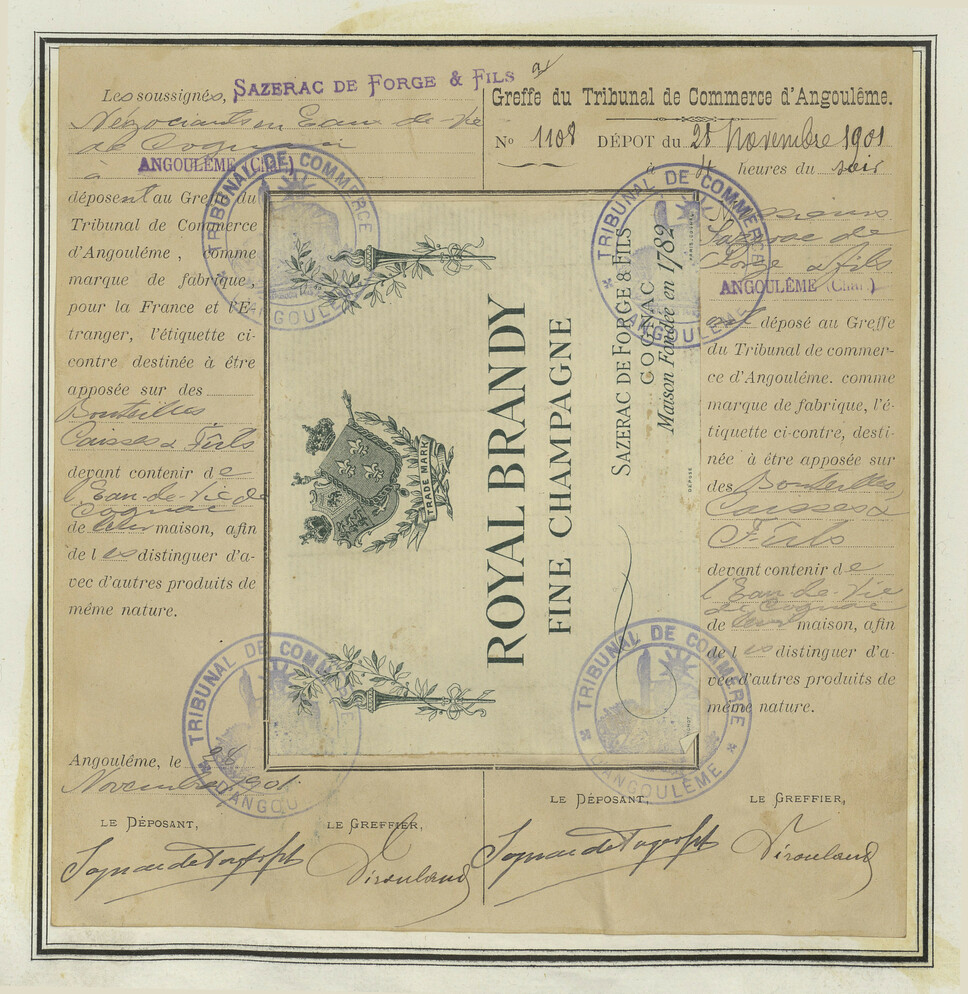 Les soussignés, SAZERAC DE FORGE & FILS
Négociants en Eaux-de-Vie
de Cognac
à ANGOULÊME (Char.)
déposent au Greffe du
Tribunal de Commerce
d'Angoulême, comme
marque de fabrique,
pour la France et l'É-
tranger, l'étiquette ci-
contre destinée à être
apposée sur des
Bouteilles
Caisses & Fûts
devant contenir de
l'Eau-de-Vie de
Cognac
de leur maison, afin
de les distinguer d'a-
vec d'autres produits de
même nature.
Angoulême, le 28
Novembre 1901
LE DÉPOSANT,
LE GREFFIER,
Sazerac de Forge & fils
Greffe du Tribunal de Commerce d'Angoulême.
No 1108 DÉPOT du 28 Novembre 1901
à 4 heures du soir
Messieurs
Sazerac de
Forge & fils
ANGOULÊME (Char.)
ont déposé au Greffe
du Tribunal de commer-
ce d'Angoulême. comme
marque de fabrique, l'é-
tiquette ci-contre, desti-
née à être apposée sur
des Bouteilles,
Caisses &
Fûts
devant contenir de
l'Eau-de-Vie
de Cognac
de leur maison, afin
de les distinguer d'a-
vec d'autres produits de
même nature.
LE DÉPOSANT,
LE GREFFIER,
Sazerac de Forge & fils
TRADE MARK
ROYAL BRANDY
FINE CHAMPAGNE
SAZERAC DE FORGE & FILS
COGNAC
Maison Fondée en 1782
DÉPOSÉ
TRIBUNAL DE COMMERCE
D'ANGOULÊME
TRIBUNAL DE COMMERCE
D'ANGOULÊME
TRIBUNAL DE COMMERCE
D'ANGOU
TRIBUNAL DE COMMERCE
D'ANGOULÊME